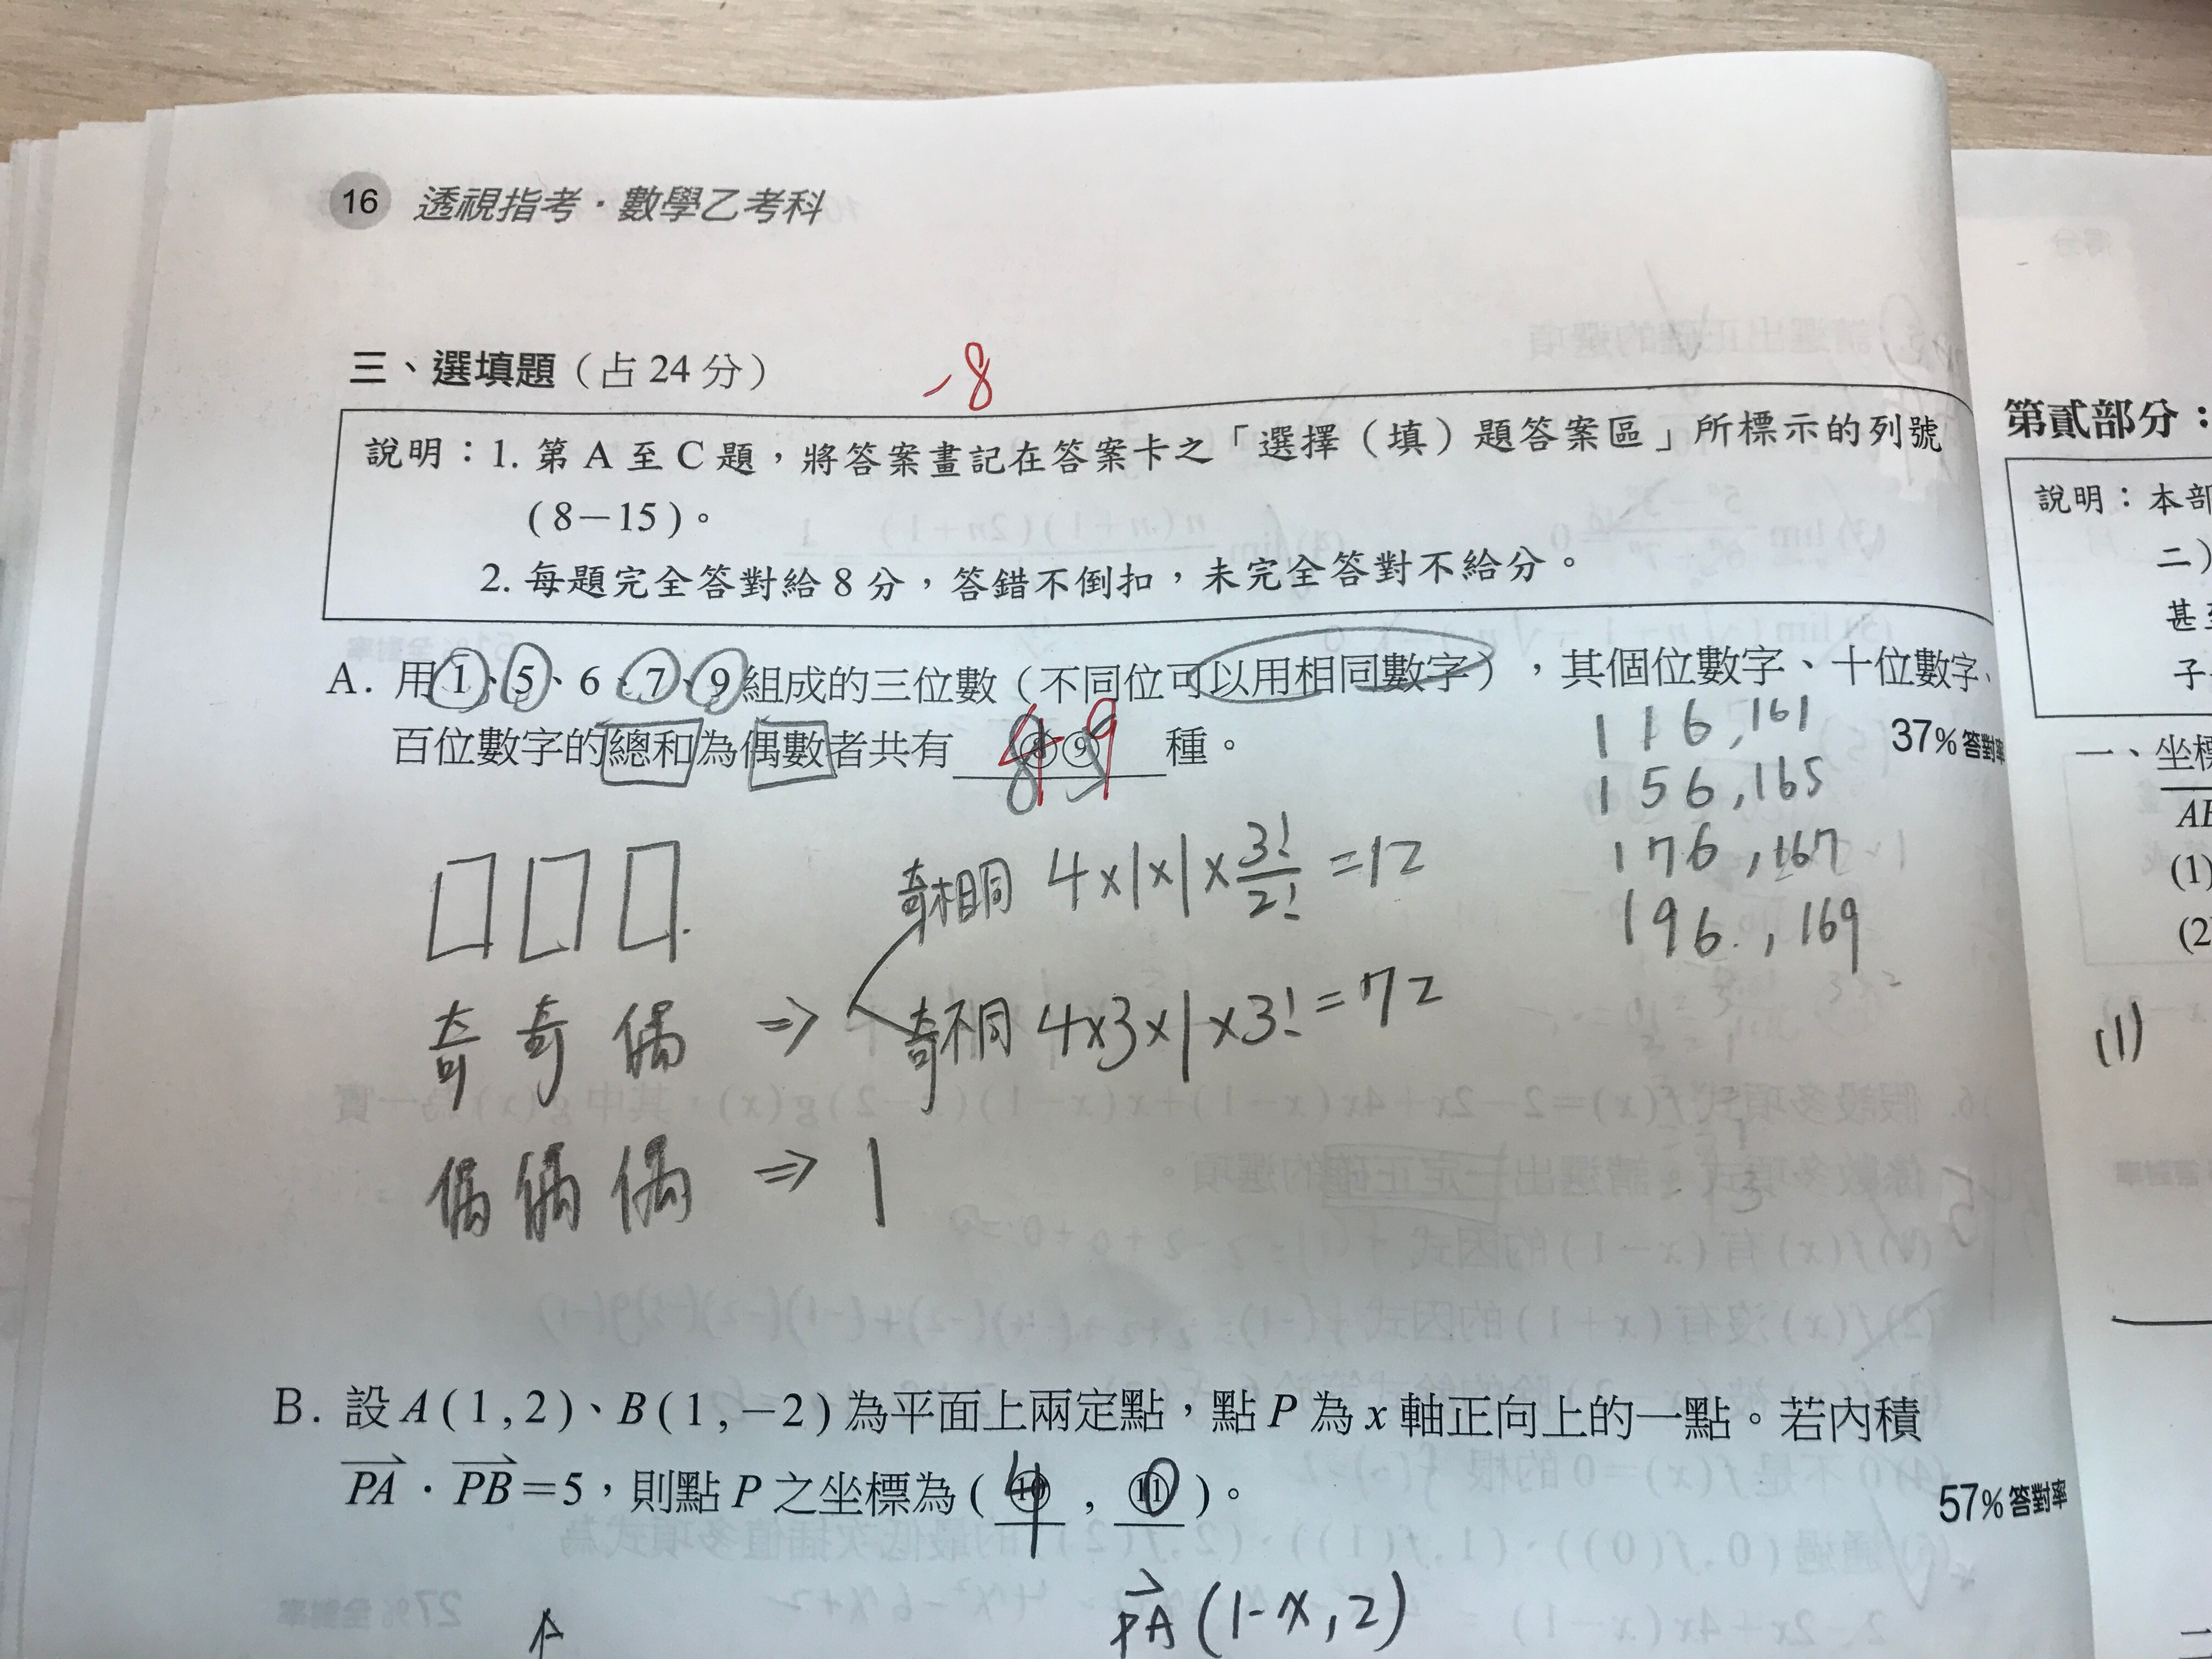 16 透視指考・數學乙考科
三、選填題（占 24 分）
-8
說明：1. 第 A 至 C 題，將答案畫記在答案卡之「選擇（填）題答案區」所標示的列號
(8－15)。
2. 每題完全答對給 8 分，答錯不倒扣，未完全答對不給分。
A. 用 1、5、6、7、9 組成的三位數（不同位可以用相同數字），其個位數字、十位數字、
百位數字的總和為偶數者共有 ⑧⑨ 種。
37% 答對率
49
116, 161
156, 165
176, 167
196, 169
奇相同 4×1×1×3!/2! =12
奇奇偶 ⇒ 奇不同 4×3×1×3! =72
偶偶偶 ⇒ 1
B. 設 A(1,2)、B(1,−2) 為平面上兩定點，點 P 為 x 軸正向上的一點。若內積
PA・PB=5，則點 P 之坐標為 ( ⑩ , ⑪ )。
4 0
57% 答對率
A
PA (1-x, 2)
第貳部分：
說明：本部
二)
甚至
子
一、坐標
(1)
(2
(1)